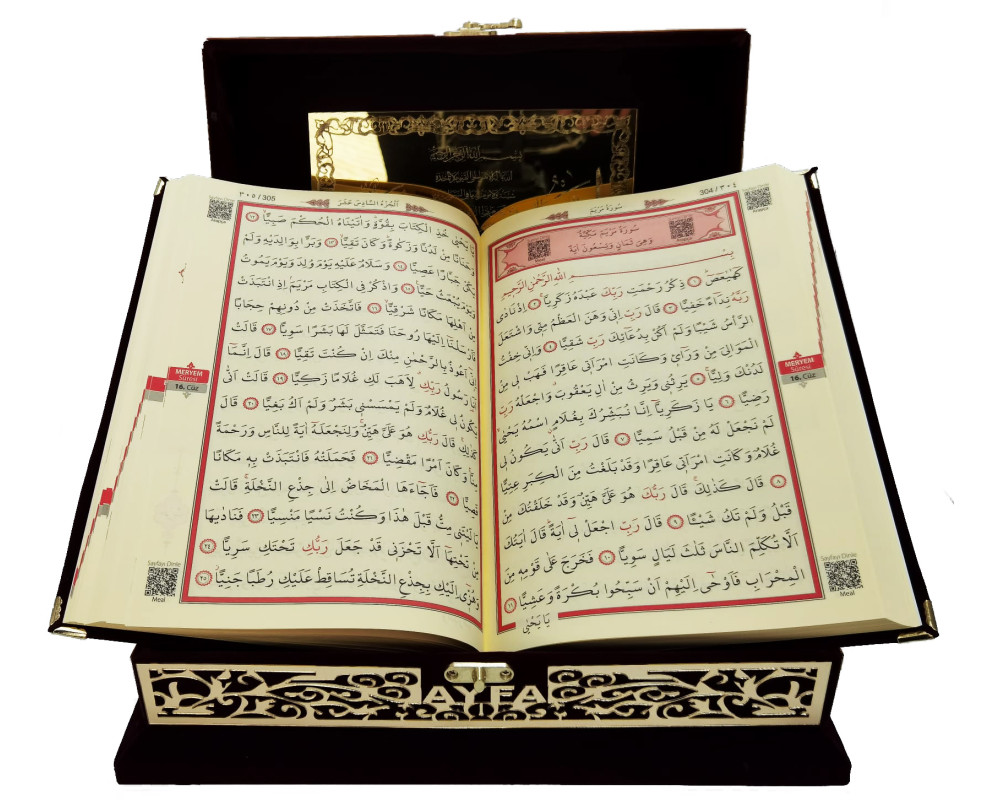 304 / ٣٠٤
سُورَةُ مَرْيَمَ
سُورَةُ مَرْيَمَ مَكِّيَّةٌ
وَهِيَ ثَمَانٍ وَتِسْعُونَ اٰيَةً
بِسْمِ اللّٰهِ الرَّحْمٰنِ الرَّح۪يمِ
كٓهٰيٰعٓصٓ ﴿١﴾ ذِكْرُ رَحْمَتِ رَبِّكَ عَبْدَهُ زَكَرِيَّا ﴿٢﴾ اِذْ نَادٰى
رَبَّهُ نِدَٓاءً خَفِيًّا ﴿٣﴾ قَالَ رَبِّ اِنّ۪ي وَهَنَ الْعَظْمُ مِنّ۪ي وَاشْتَعَلَ
الرَّأْسُ شَيْبًا وَلَمْ اَكُنْ بِدُعَٓائِكَ رَبِّ شَقِيًّا ﴿٤﴾ وَاِنّ۪ي خِفْتُ
الْمَوَالِيَ مِنْ وَرَٓاء۪ي وَكَانَتِ امْرَاَت۪ي عَاقِرًا فَهَبْ ل۪ي مِنْ
لَدُنْكَ وَلِيًّا ﴿٥﴾ يَرِثُن۪ي وَيَرِثُ مِنْ اٰلِ يَعْقُوبَ وَاجْعَلْهُ رَبِّ
رَضِيًّا ﴿٦﴾ يَا زَكَرِيَّٓا اِنَّا نُبَشِّرُكَ بِغُلَامٍ اسْمُهُ يَحْيٰى
لَمْ نَجْعَلْ لَهُ مِنْ قَبْلُ سَمِيًّا ﴿٧﴾ قَالَ رَبِّ اَنّٰى يَكُونُ ل۪ي
غُلَامٌ وَكَانَتِ امْرَاَت۪ي عَاقِرًا وَقَدْ بَلَغْتُ مِنَ الْكِبَرِ عِتِيًّا
﴿٨﴾ قَالَ كَذٰلِكَ قَالَ رَبُّكَ هُوَ عَلَيَّ هَيِّنٌ وَقَدْ خَلَقْتُكَ مِنْ
قَبْلُ وَلَمْ تَكُ شَيْـًٔا ﴿٩﴾ قَالَ رَبِّ اجْعَلْ ل۪ٓي اٰيَةً قَالَ اٰيَتُكَ
اَلَّا تُكَلِّمَ النَّاسَ ثَلٰثَ لَيَالٍ سَوِيًّا ﴿١٠﴾ فَخَرَجَ عَلٰى قَوْمِه۪ مِنَ
الْمِحْرَابِ فَاَوْحٰٓى اِلَيْهِمْ اَنْ سَبِّحُوا بُكْرَةً وَعَشِيًّا ﴿١١﴾
يَا يَحْيٰى
MERYEM
Suresi
16. Cüz
Sayfayı Dinle
Meal
٣٠٥ / 305
اَلْجُزْءُ السَّادِسُ عَشَرَ
يَا يَحْيٰى خُذِ الْكِتَابَ بِقُوَّةٍ وَاٰتَيْنَاهُ الْحُكْمَ صَبِيًّا ﴿١٢﴾
وَحَنَانًا مِنْ لَدُنَّا وَزَكٰوةً وَكَانَ تَقِيًّا ﴿١٣﴾ وَبَرًّا بِوَالِدَيْهِ وَلَمْ
يَكُنْ جَبَّارًا عَصِيًّا ﴿١٤﴾ وَسَلَامٌ عَلَيْهِ يَوْمَ وُلِدَ وَيَوْمَ يَمُوتُ
وَيَوْمَ يُبْعَثُ حَيًّا ﴿١٥﴾ وَاذْكُرْ فِي الْكِتَابِ مَرْيَمَ اِذِ انْتَبَذَتْ
مِنْ اَهْلِهَا مَكَانًا شَرْقِيًّا ﴿١٦﴾ فَاتَّخَذَتْ مِنْ دُونِهِمْ حِجَابًا
فَاَرْسَلْنَٓا اِلَيْهَا رُوحَنَا فَتَمَثَّلَ لَهَا بَشَرًا سَوِيًّا ﴿١٧﴾ قَالَتْ
اِنّ۪ٓي اَعُوذُ بِالرَّحْمٰنِ مِنْكَ اِنْ كُنْتَ تَقِيًّا ﴿١٨﴾ قَالَ اِنَّمَٓا
اَنَا رَسُولُ رَبِّكِ لِاَهَبَ لَكِ غُلَامًا زَكِيًّا ﴿١٩﴾ قَالَتْ اَنّٰى
يَكُونُ ل۪ي غُلَامٌ وَلَمْ يَمْسَسْن۪ي بَشَرٌ وَلَمْ اَكُ بَغِيًّا ﴿٢٠﴾ قَالَ
كَذٰلِكِ قَالَ رَبُّكِ هُوَ عَلَيَّ هَيِّنٌ وَلِنَجْعَلَهُٓ اٰيَةً لِلنَّاسِ وَرَحْمَةً
مِنَّا وَكَانَ اَمْرًا مَقْضِيًّا ﴿٢١﴾ فَحَمَلَتْهُ فَانْتَبَذَتْ بِه۪ مَكَانًا
قَصِيًّا ﴿٢٢﴾ فَاَجَٓاءَهَا الْمَخَاضُ اِلٰى جِذْعِ النَّخْلَةِ قَالَتْ
يَا لَيْتَن۪ي مِتُّ قَبْلَ هٰذَا وَكُنْتُ نَسْيًا مَنْسِيًّا ﴿٢٣﴾ فَنَادٰيهَا
مِنْ تَحْتِهَٓا اَلَّا تَحْزَن۪ي قَدْ جَعَلَ رَبُّكِ تَحْتَكِ سَرِيًّا ﴿٢٤﴾
وَهُزّ۪ٓي اِلَيْكِ بِجِذْعِ النَّخْلَةِ تُسَاقِطْ عَلَيْكِ رُطَبًا جَنِيًّا ﴿٢٥﴾
MERYEM
Suresi
16. Cüz
Sayfayı Dinle
Meal
AYFA